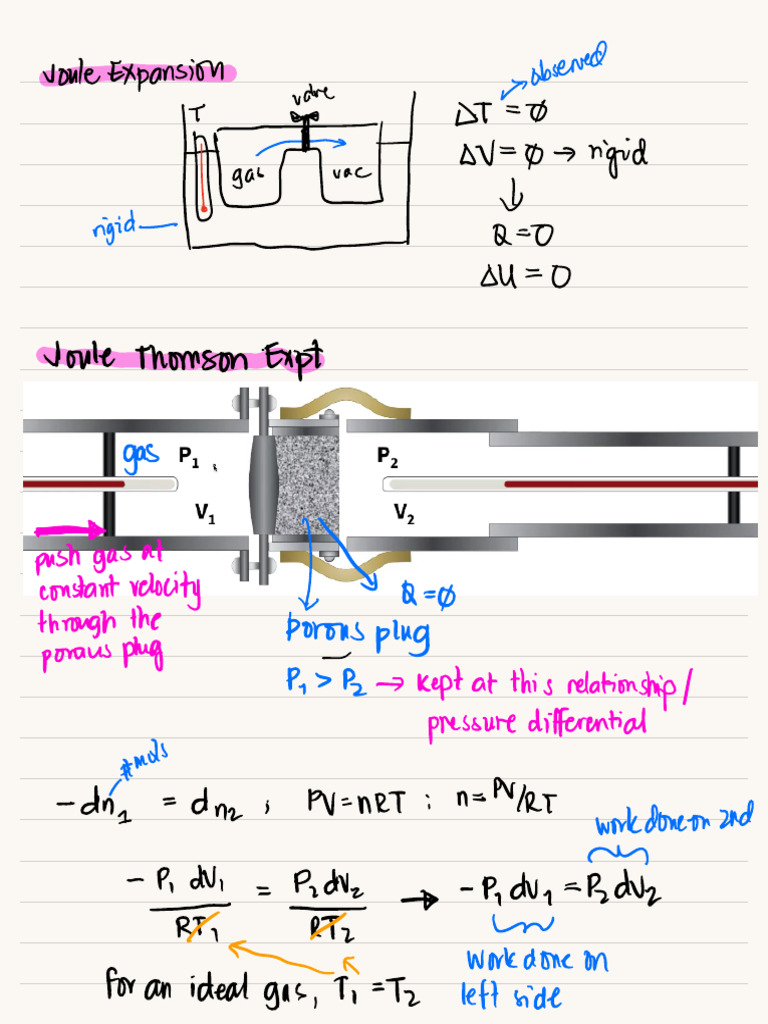 Joule Expansion
valve
T
gas
vac
rigid
observed
ΔT = 0
ΔV = 0 → rigid
↓
Q = 0
ΔU = 0
Joule Thomson Expt
gas P1
P2
V1
V2
push gas at
constant velocity
through the
porous plug
Q = 0
porous plug
P1 > P2 → kept at this relationship/
pressure differential
# mols
-dn1 = dn2 ; PV = nRT ; n = PV/RT
work done on 2nd
-P1 dV1 / RT1 = P2 dV2 / RT2 → -P1 dV1 = P2 dV2
work done on
left side
for an ideal gas, T1 = T2